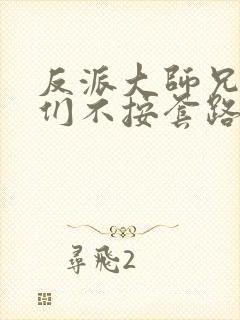 反派大師兄
们不按套路
尋飛2